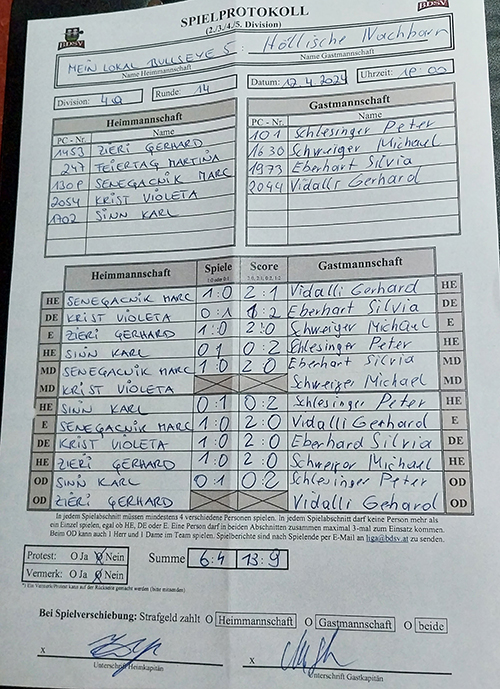 BDSV
SPIELPROTOKOLL
BDSV
(2./3./4./5. Division)
MEIN LOKAL BULLSEYE 5 : Höllische Nachbarn
Name Heimmannschaft Name Gastmannschaft
Division: 4D Runde: 14 Datum: 12.4.2024 Uhrzeit: 18:00
Heimmannschaft Gastmannschaft
PC - Nr. Name PC - Nr. Name
1453 ZIERI GERHARD 101 Schlesinger Peter
247 FEIERTAG MARTINA 1630 Schweiger Michael
1308 SENEGACNIK MARC 1973 Eberhart Silvia
2054 KRIST VIOLETA 2044 Vidalli Gerhard
1702 SINN KARL
Heimmannschaft Spiele Score Gastmannschaft
1:0 oder 0:1 2:0, 2:1, 0:2, 1:2
HE SENEGACNIK MARC 1:0 2:1 Vidalli Gerhard HE
DE KRIST VIOLETA 0:1 1:2 Eberhart Silvia DE
E ZIERI GERHARD 1:0 2:0 Schweiger Michael E
HE SINN KARL 0 1 0:2 Schlesinger Peter HE
MD SENEGACNIK MARC 1:0 2 0 Eberhart Silvia MD
MD KRIST VIOLETA Schweiger Michael MD
HE SINN KARL 0:1 0:2 Schlesinger Peter HE
E SENEGACNIK MARC 1:0 2:0 Vidalli Gerhard E
DE KRIST VIOLETA 1:0 2:0 Eberhard Silvia DE
HE ZIERI GERHARD 1:0 2:0 Schweiger Michael HE
OD SINN KARL 0:1 0:2 Schlesinger Peter OD
OD ZIERI GERHARD Vidalli Gerhard OD
In jedem Spielabschnitt müssen mindestens 4 verschiedene Personen spielen. In jedem Spielabschnitt darf keine Person mehr als
ein Einzel spielen, egal ob HE, DE oder E. Eine Person darf in beiden Abschnitten zusammen maximal 3-mal zum Einsatz kommen.
Beim OD kann auch 1 Herr und 1 Dame im Team spielen. Spielberichte sind nach Spielende per E-Mail an liga@bdsv.at zu senden.
Protest: O Ja O Nein Summe 6:4 13:9
Vermerk: O Ja O Nein
*) Ein Vermerk/Protest kann auf der Rückseite gemacht werden (bitte ausstellen)
Bei Spielverschiebung: Strafgeld zahlt O Heimmannschaft O Gastmannschaft O beide
x x
Unterschrift Heimkapitän Unterschrift Gastkapitän